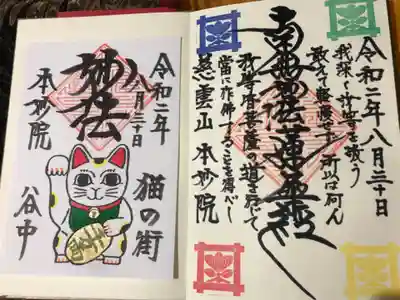 令和二年八月三十日
我深く汝等を敬う
敢えて軽慢せず所以は何ん
南無妙法蓮華経
汝等皆菩薩の道を行じて
當に作佛することを得べし
慈雲山 本妙院
令和二年
八月三十日
妙法
本妙院
猫の街
谷中